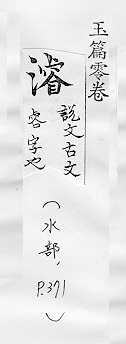 玉篇零卷
濬
説文古文
字也
(水部, P.371)